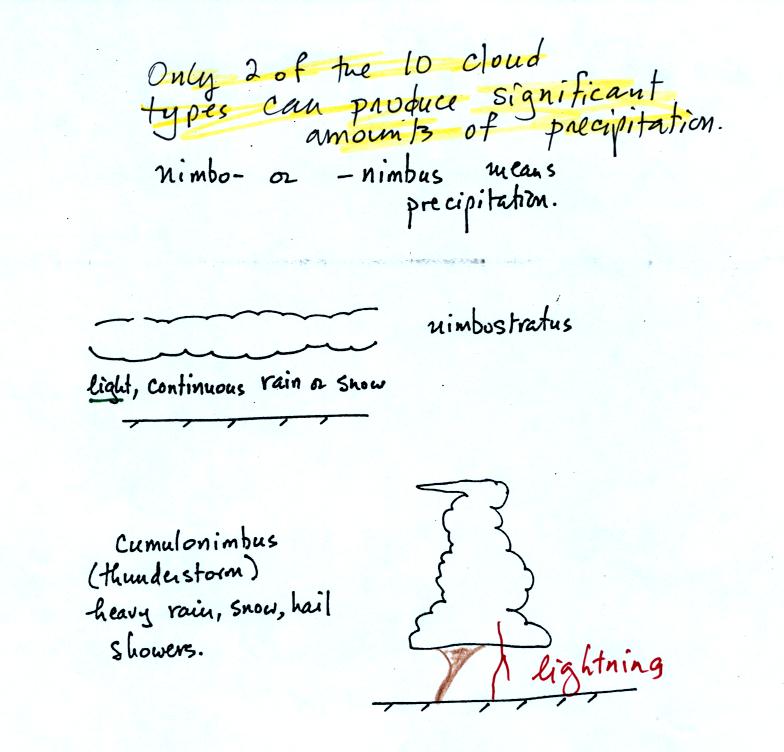 Only 2 of the 10 cloud
types can produce significant
amounts of precipitation.
nimbo- or -nimbus means
precipitation.
nimbostratus
light, continuous rain or snow
Cumulonimbus
(thunderstorm)
heavy rain, snow, hail
showers.
lightning